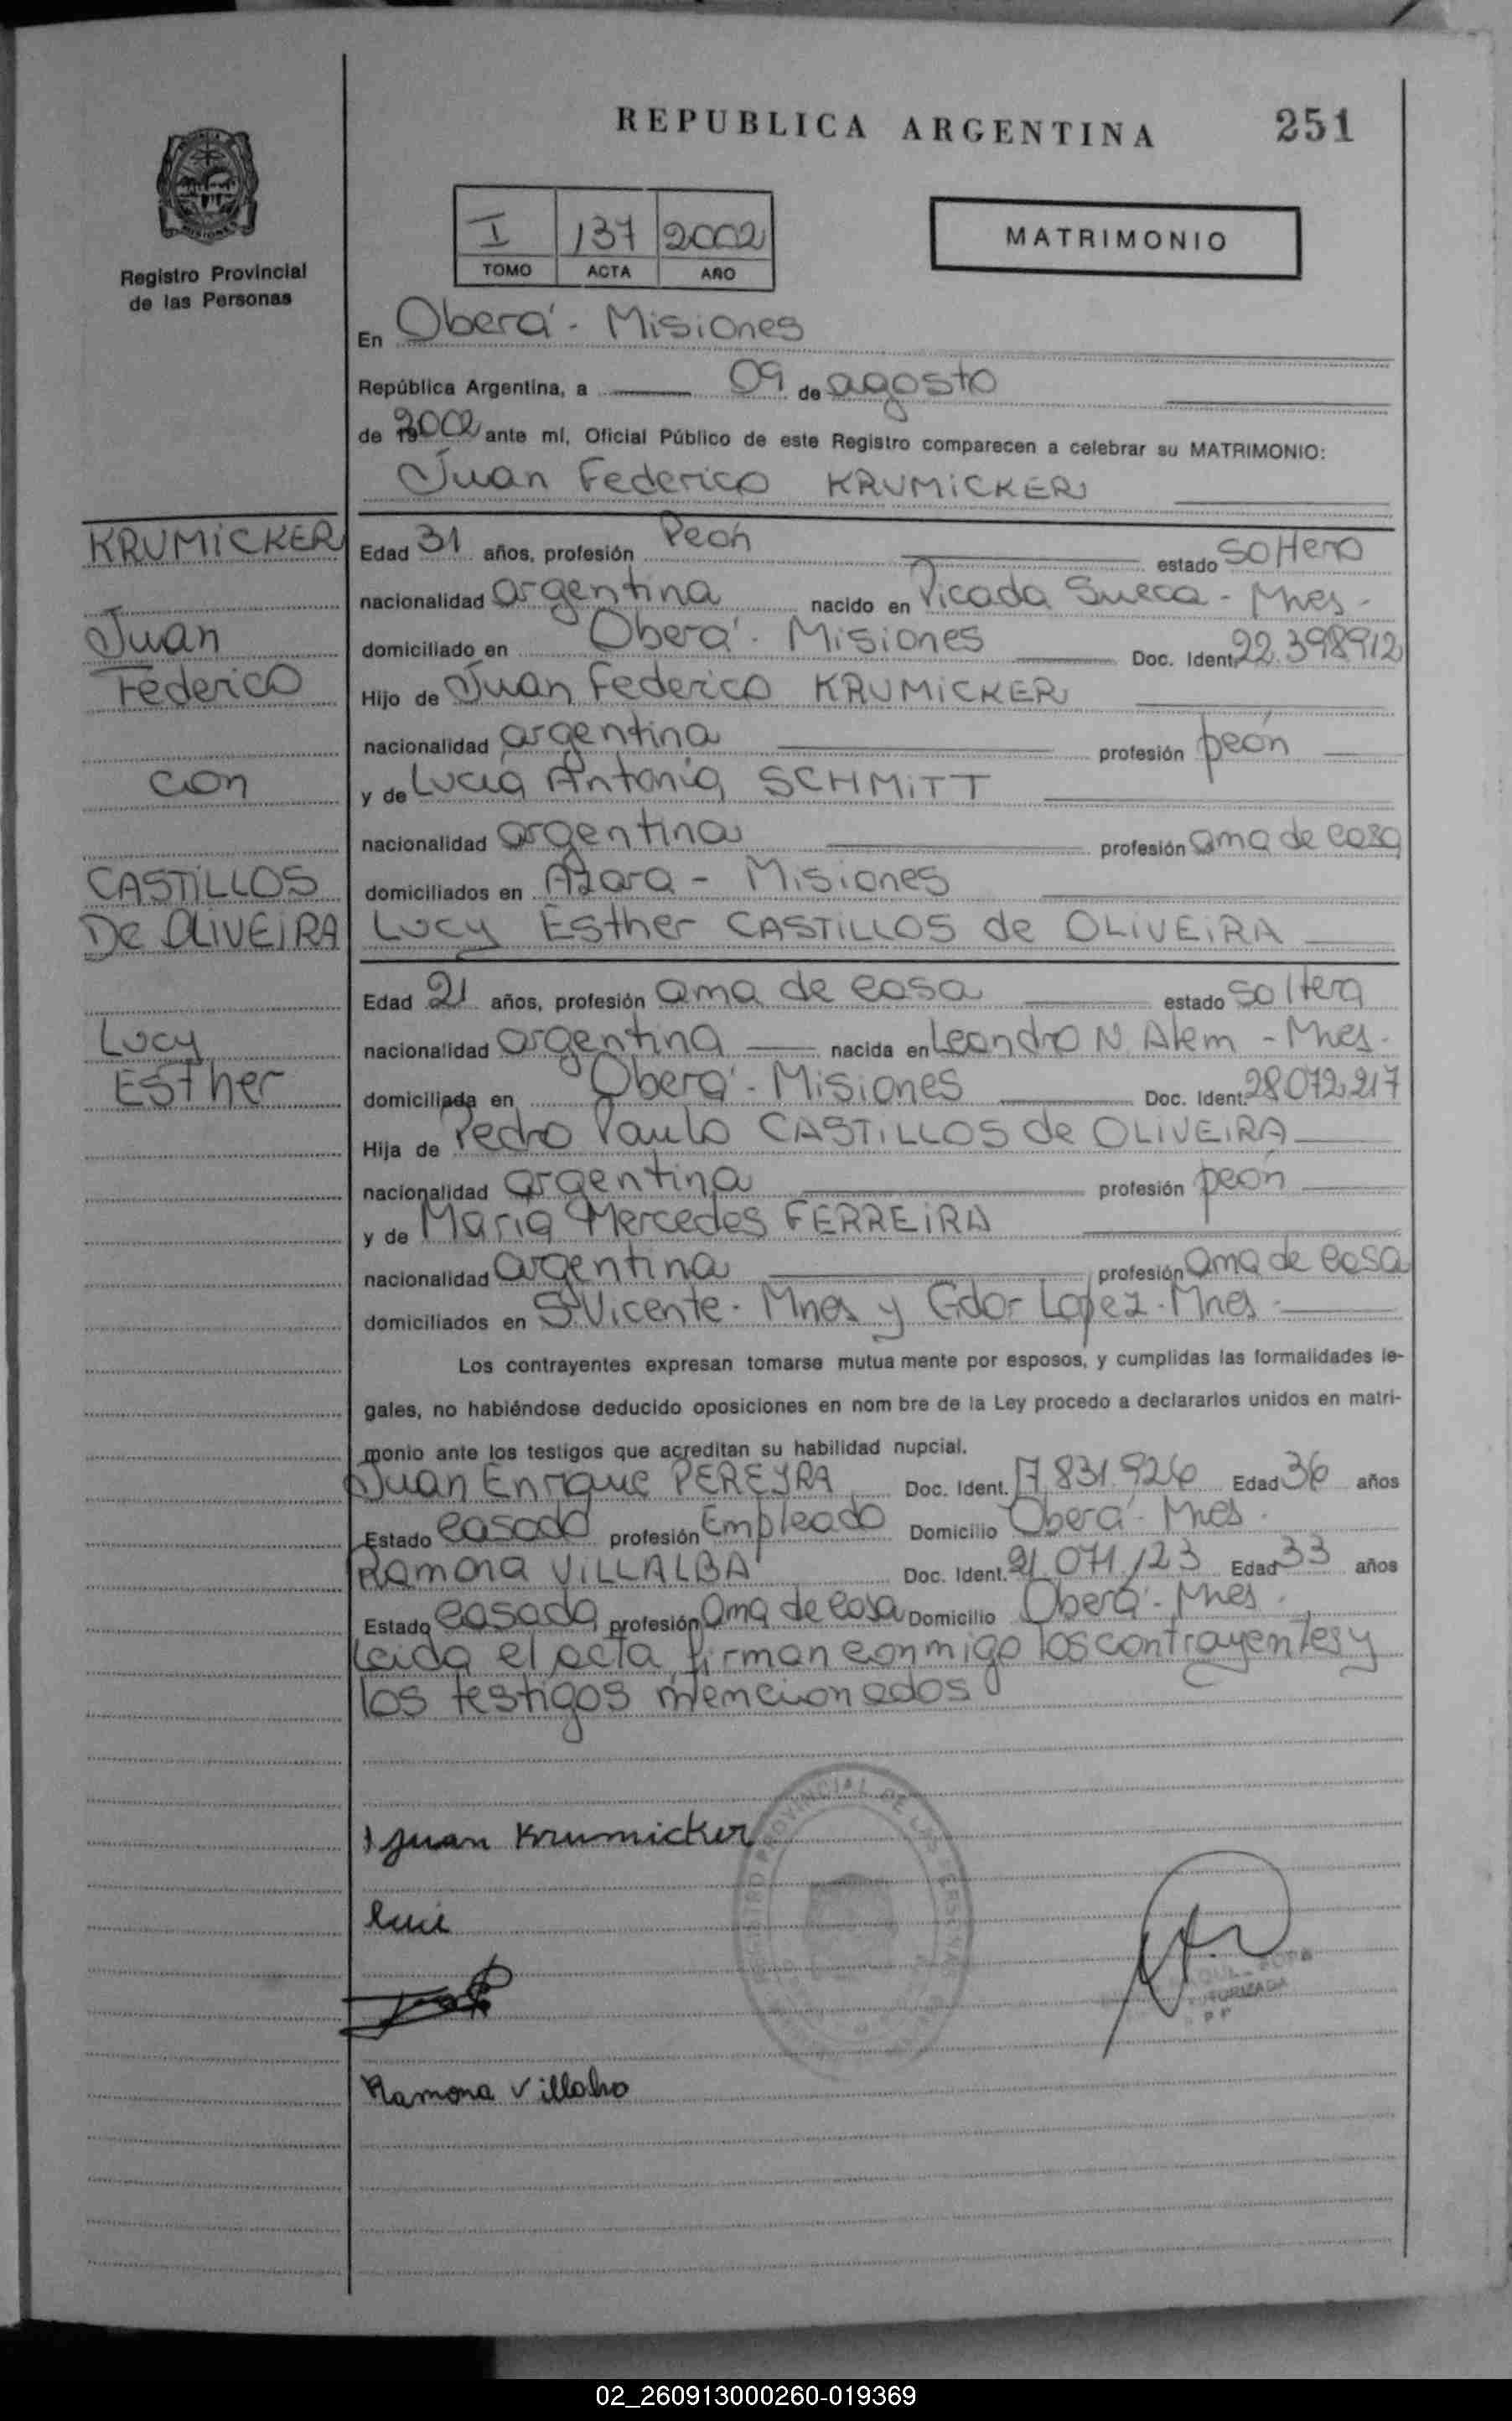 REPUBLICA ARGENTINA
251
I
137
2002
TOMO
ACTA
AÑO
MATRIMONIO
Registro Provincial
de las Personas
En Oberá - Misiones
República Argentina, a 09 de agosto
de 2002 ante mí, Oficial Público de este Registro comparecen a celebrar su MATRIMONIO:
Juan Federico KRUMICKER
KRUMICKER
Juan
Federico
con
CASTILLOS
De OLIVEIRA
Lucy
Esther
Edad 31 años, profesión Peón estado soltero
nacionalidad argentina nacido en Picada Sueca - Mnes -
domiciliado en Oberá - Misiones Doc. Ident. 22.398912
Hijo de Juan Federico KRUMICKER
nacionalidad argentina profesión peón
y de Lucía Antonia SCHMITT
nacionalidad argentina profesión ama de casa
domiciliados en Azara - Misiones
Lucy Esther CASTILLOS de OLIVEIRA
Edad 21 años, profesión ama de casa estado soltera
nacionalidad argentina nacida en Leandro N. Alem - Mnes.
domiciliada en Oberá - Misiones Doc. Ident. 28.072.217
Hija de Pedro Paulo CASTILLOS de OLIVEIRA
nacionalidad argentina profesión peón
y de María Mercedes FERREIRA
nacionalidad argentina profesión ama de casa
domiciliados en Sn Vicente - Mnes y Gdor Lopez - Mnes -
Los contrayentes expresan tomarse mutua mente por esposos, y cumplidas las formalidades le-
gales, no habiéndose deducido oposiciones en nom bre de la Ley procedo a declararlos unidos en matri-
monio ante los testigos que acreditan su habilidad nupcial.
Juan Enrique PEREYRA Doc. Ident. 17.831.926 Edad 36 años
Estado casado profesión Empleado Domicilio Oberá - Mnes.
Ramona VILLALBA Doc. Ident. 21.071.123 Edad 33 años
Estado casada profesión ama de casa Domicilio Oberá - Mnes.
Leida el acta, firman conmigo los contrayentes y
los testigos mencionados
Juan Krumicker
Ramona Villalba
REGISTRO PROVINCIAL DE LAS PERSONAS
AUTORIZADA
02_260913000260-019369